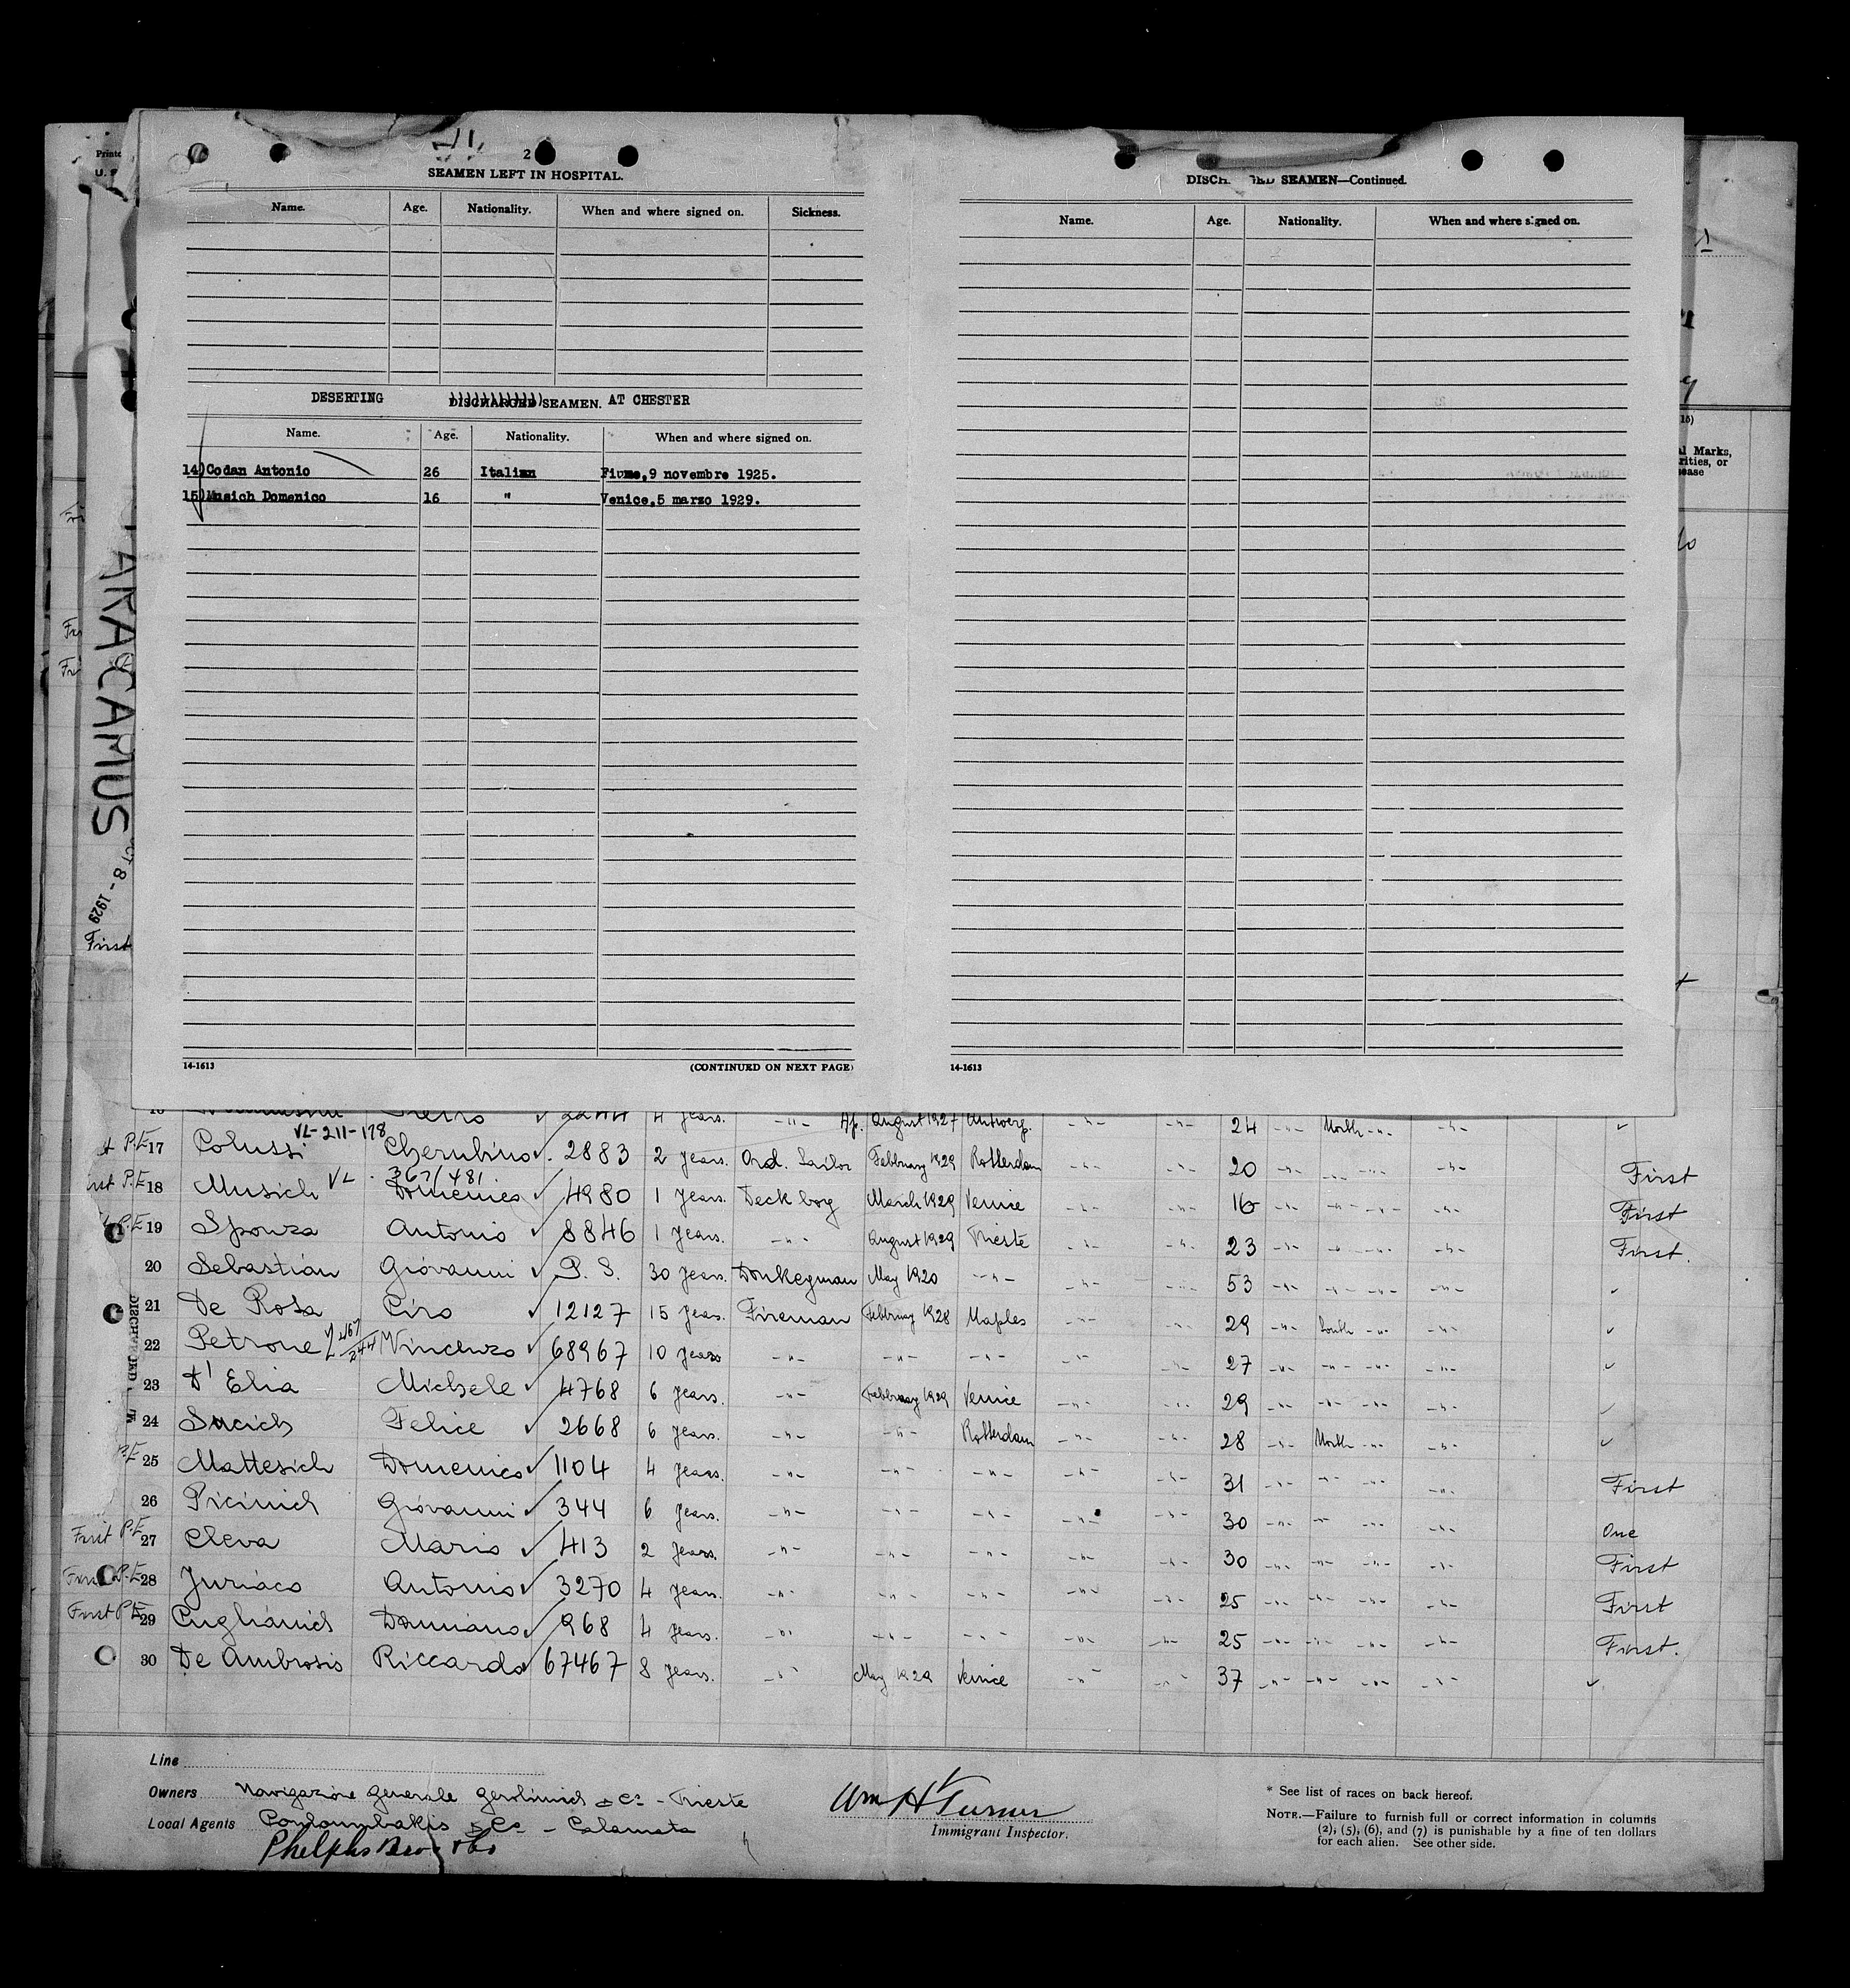 2
SEAMEN LEFT IN HOSPITAL.
Name. Age. Nationality. When and where signed on. Sickness.
DESERTING DISCHARGED SEAMEN. AT CHESTER
Name. Age. Nationality. When and where signed on.
14) Codan Antonio 26 Italian Fiume, 9 novembre 1925.
15) Musich Domenico 16 " Venice, 5 marzo 1929.
14-1613 (CONTINUED ON NEXT PAGE)
SEAMEN—Continued.
Name. Age. Nationality. When and where signed on.
14-1613
ARACAMUS
8 - 1929
First
4 Years. -"- August 1927 Antwerp. -"- -"- 24 -"- North -"- -"-
VL-211-178
P.E 17 Colussi Cherubino 2883 2 Years. Ord. Sailor February 1929 Rotterdam -"- -"- 20 -"- First
VL 367/481
P.E 18 Musich Domenico 4980 1 Years. Deck boy March 1929 Venice -"- -"- 16 -"- -"- -"- -"- First
P.E 19 Sponza Antonio 8846 1 Years. -"- August 1929 Trieste -"- -"- 23 -"- -"- -"- -"- First.
20 Sebastián Giovanni P. S. 30 Years. Donkeyman May 1920 -"- -"- -"- 53 -"- -"- -"- -"-
21 De Rosa Ciro 12127 15 Years. Fireman February 1928 Naples -"- -"- 29 -"- South -"- -"-
22 Petrone Vincenzo 68967 10 Years -"- -"- -"- -"- -"- 27 -"- -"- -"- -"-
23 D'Elia Michele 4768 6 Years. -"- February 1929 Venice -"- -"- 29 -"- -"- -"- -"-
24 Sucich Felice 2668 6 Years. -"- -"- Rotterdam -"- -"- 28 -"- North -"- -"-
P.E 25 Mattesich Domenico 1104 4 Years. -"- -"- -"- -"- -"- 31 -"- -"- -"- -"- First
26 Picinich Giovanni 344 6 Years. -"- -"- -"- -"- 30 -"- -"- -"- -"- One
First P.E 27 Cleva Mario 413 2 Years. -"- -"- -"- -"- 30 -"- -"- -"- -"- First
First P.E 28 Juriaco Antonio 3270 4 Years. -"- -"- -"- -"- -"- 25 -"- -"- -"- -"- First
First P.E 29 Cuglianich Damiano 968 4 Years. -"- -"- -"- -"- -"- 25 -"- -"- -"- -"- First.
30 De Ambrosis Riccardo 67467 8 Years. -"- May 1929 Venice -"- -"- 37 -"- -"- -"- -"-
Line
Owners Navigazione Generale Gerolimich & Co - Trieste
Local Agents & Co - Calamata
Phelps Bros & Co
Wm H Turner
Immigrant Inspector.
* See list of races on back hereof.
NOTE.—Failure to furnish full or correct information in columns
(2), (5), (6), and (7) is punishable by a fine of ten dollars
for each alien. See other side.